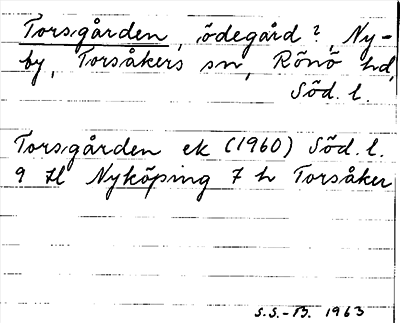 Torsgården, ödegård?, Ny-
by, Torsåkers sn, Rönö hd,
Söd. l.
Torsgården ek (1960) Söd. l.
9 H Nyköping 7 h Torsåker
S.S.-B. 1963